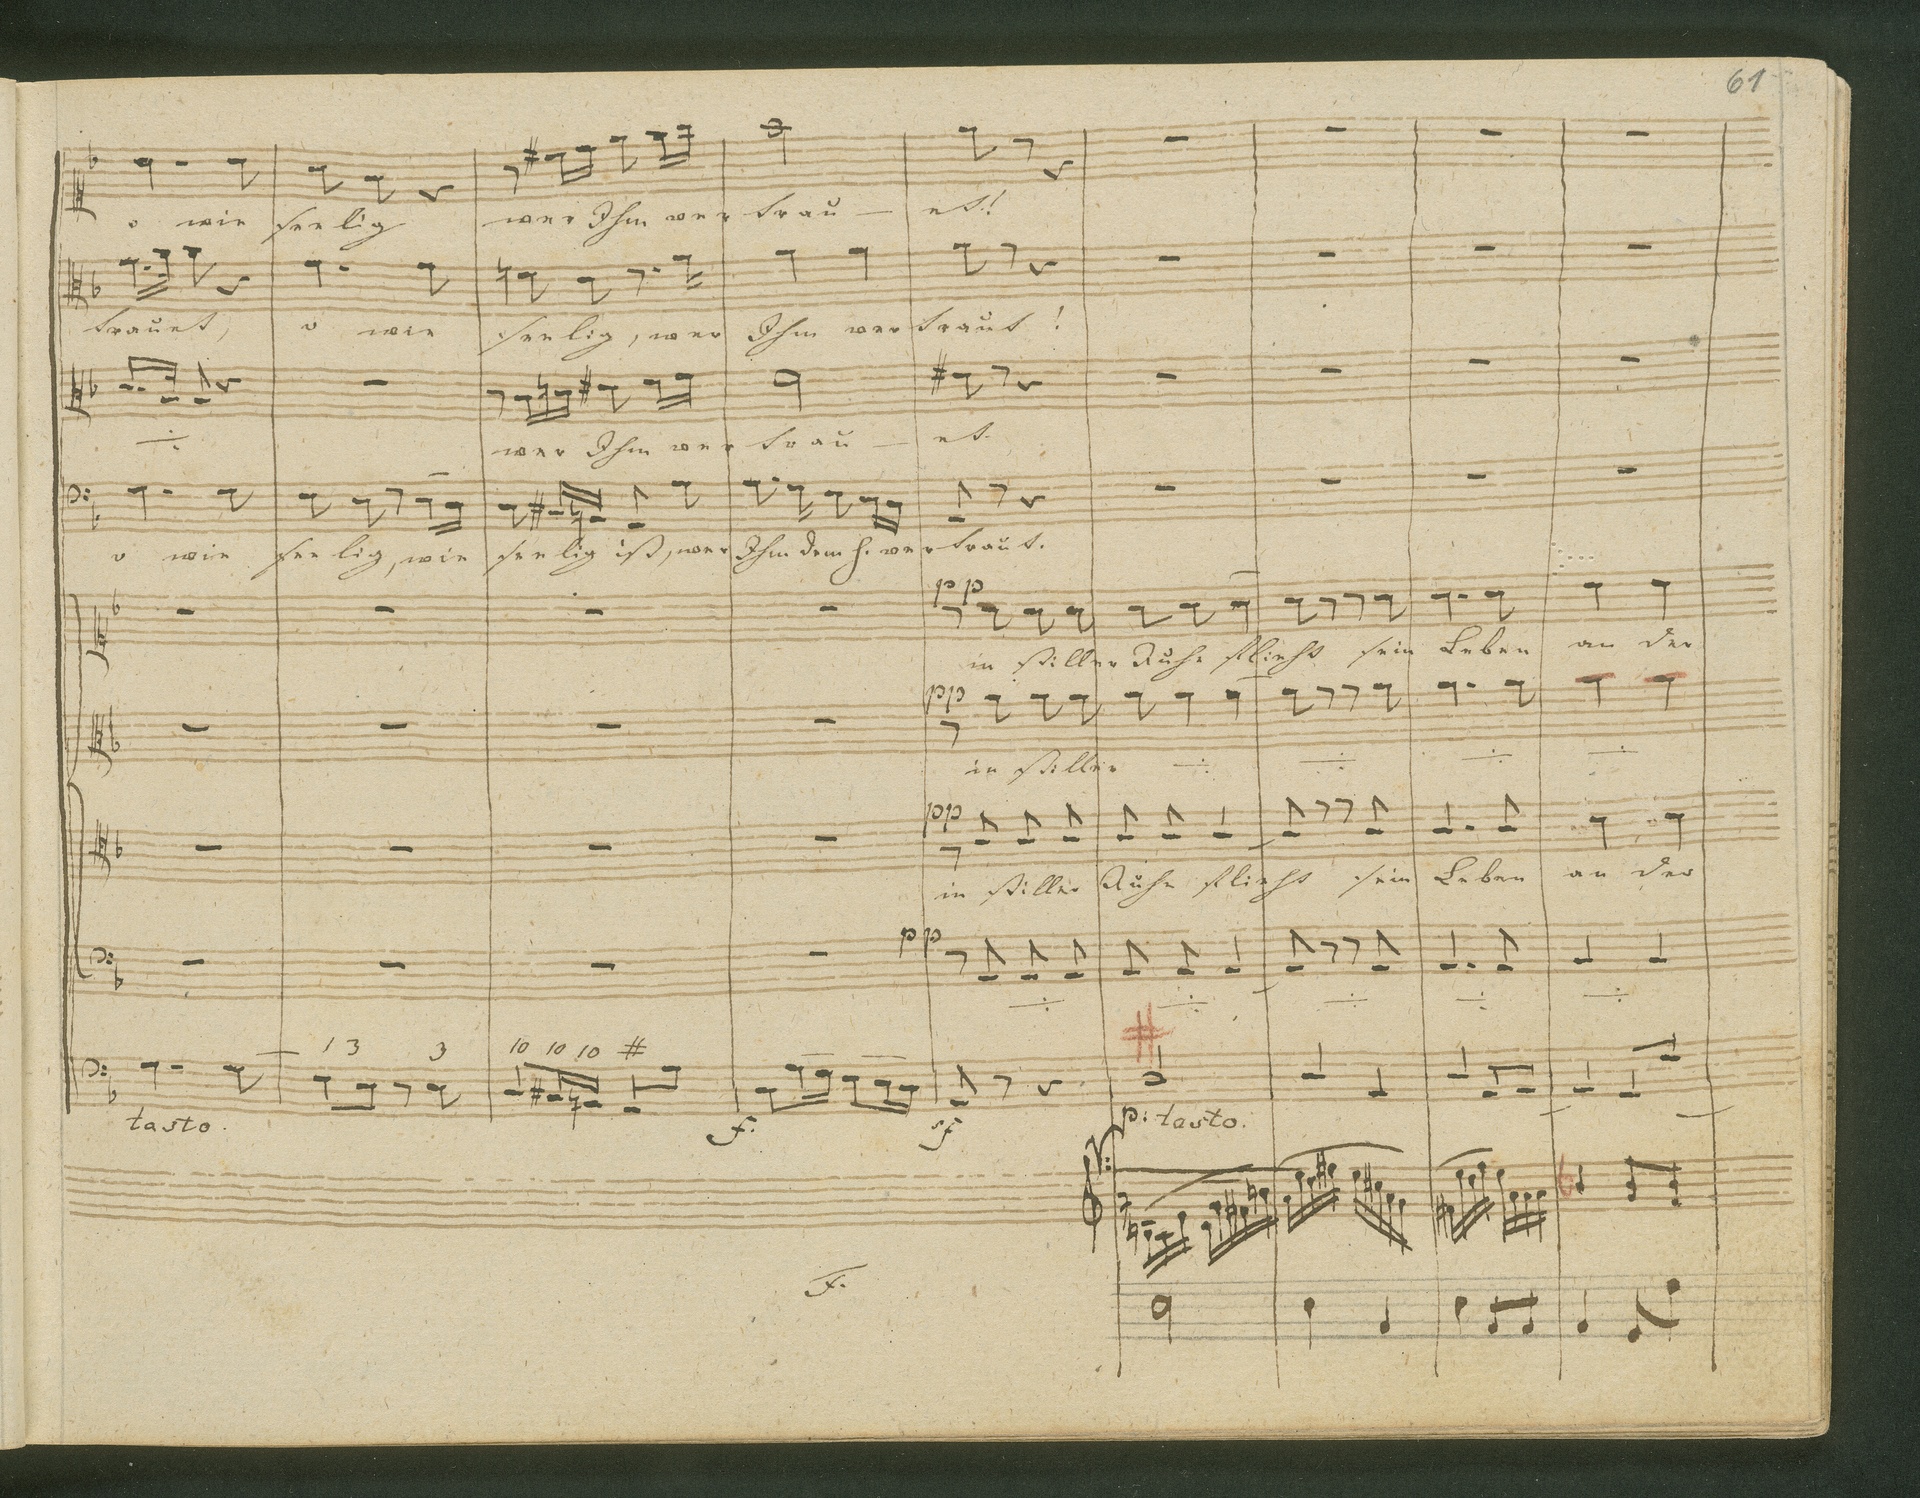 61
o wie seelig wer Ihm vertrau — et!
trauet, o wie seelig, wer Ihm vertraut!
wer Ihm vertrau — et.
o wie seelig, wie seelig ist, wer Ihm dem H. vertraut.
pp
in stiller Ruhe flieht sein Leben an der
pp
in stiller
pp
in stiller Ruhe flieht sein Leben an der
pp
1 3 3 10 10 10 #
tasto. f. sf p: tasto.
f.